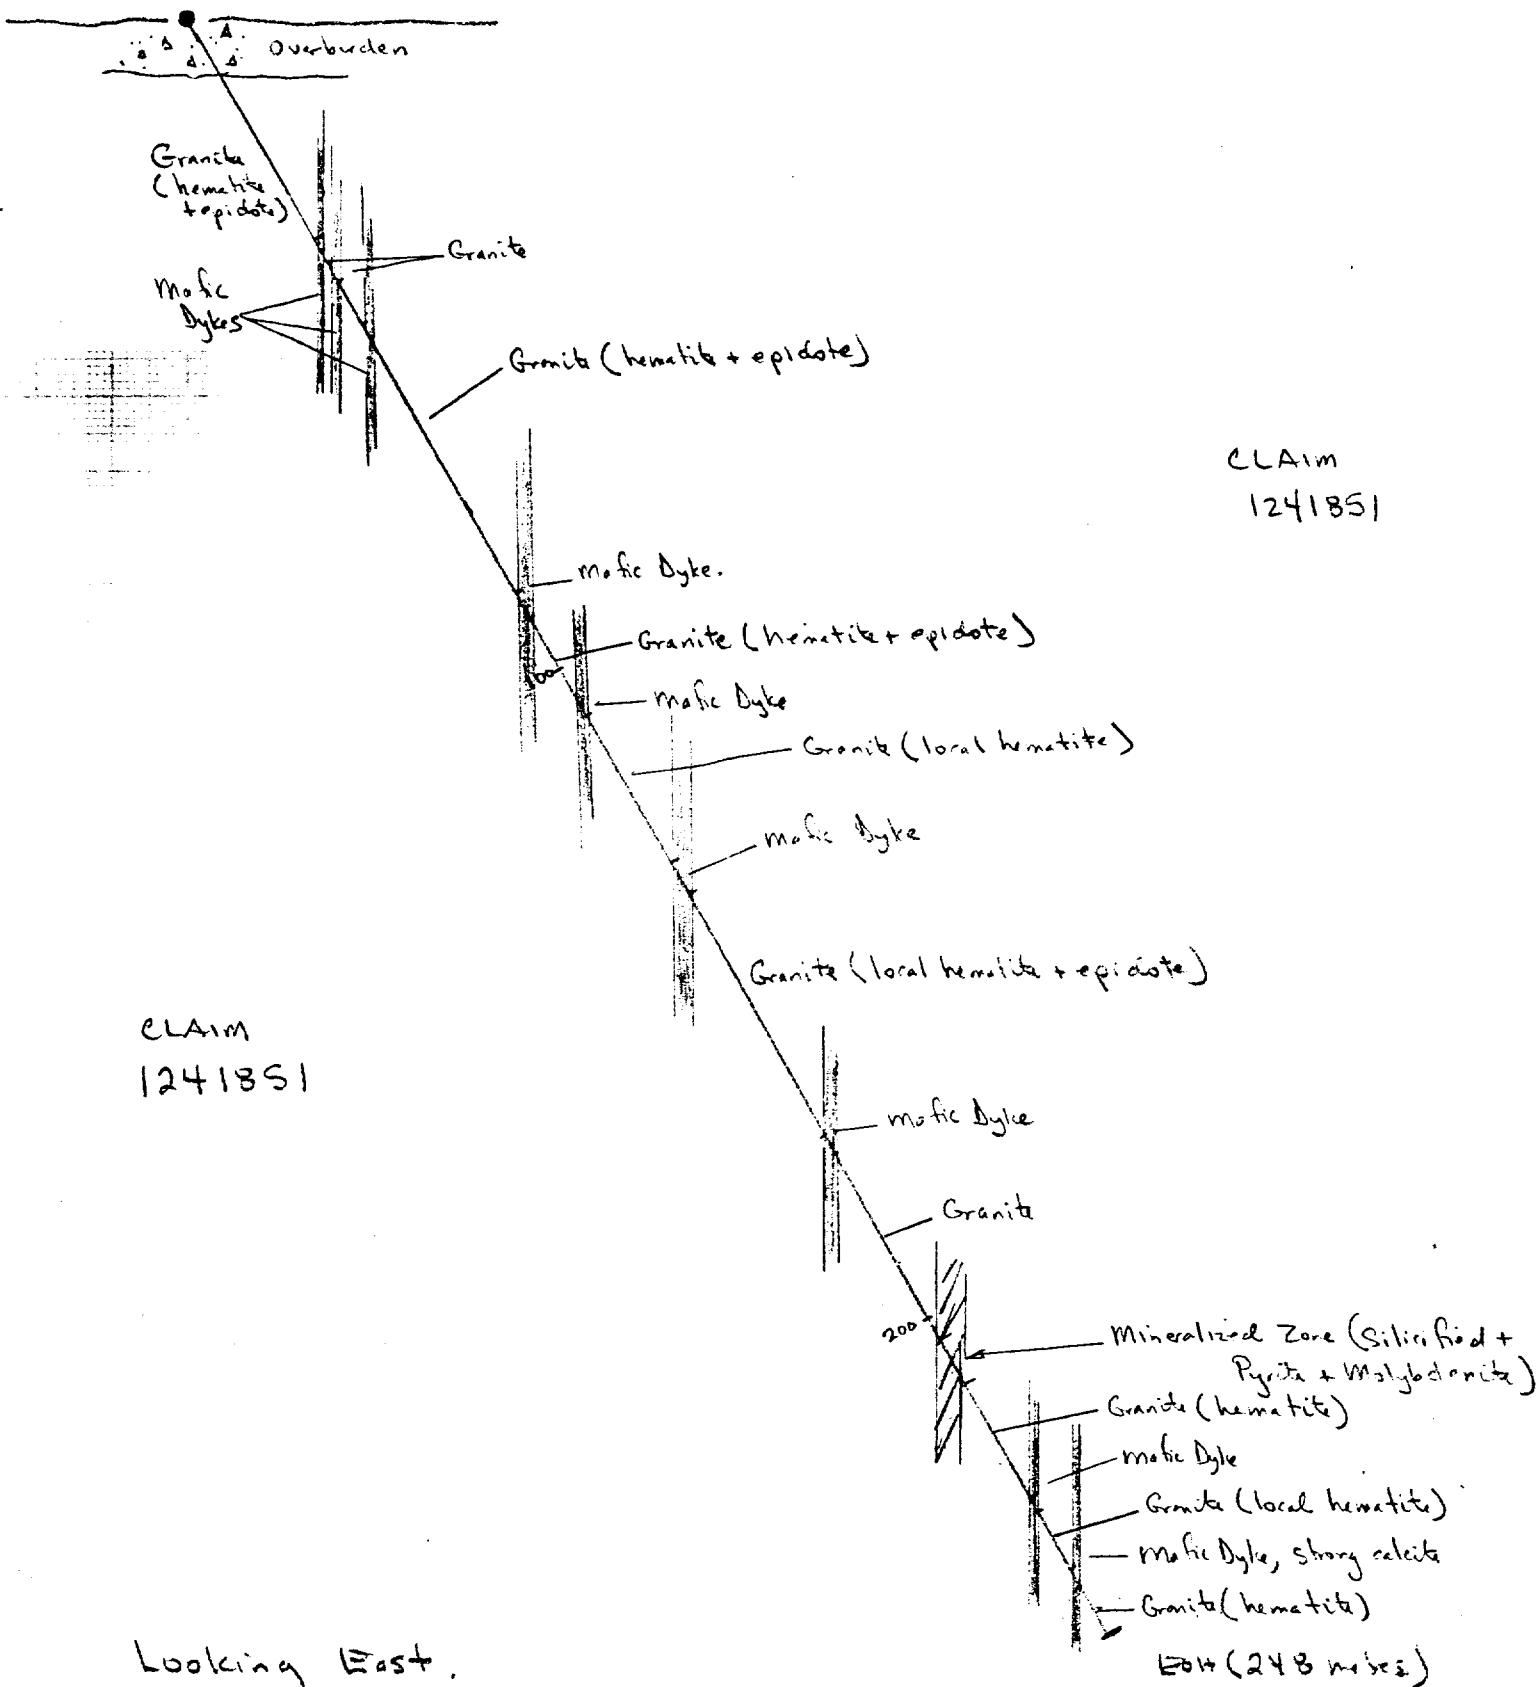 Overburden
Granite
(hematite
+ epidote)
Granite
Mafic
Dykes
Granite (hematite + epidote)
CLAIM
1241851
Mafic Dyke.
Granite (hematite + epidote)
100
Mafic Dyke
Granite (local hematite)
Mafic Dyke
Granite (local hematite + epidote)
CLAIM
1241851
Mafic Dyke
Granite
200
Mineralized Zone (Silicified +
Pyrite + Molybdenite)
Granite (hematite)
Mafic Dyke
Granite (local hematite)
Mafic Dyke, strong calcite
Granite (hematite)
Looking East.
EOH (248 metres)